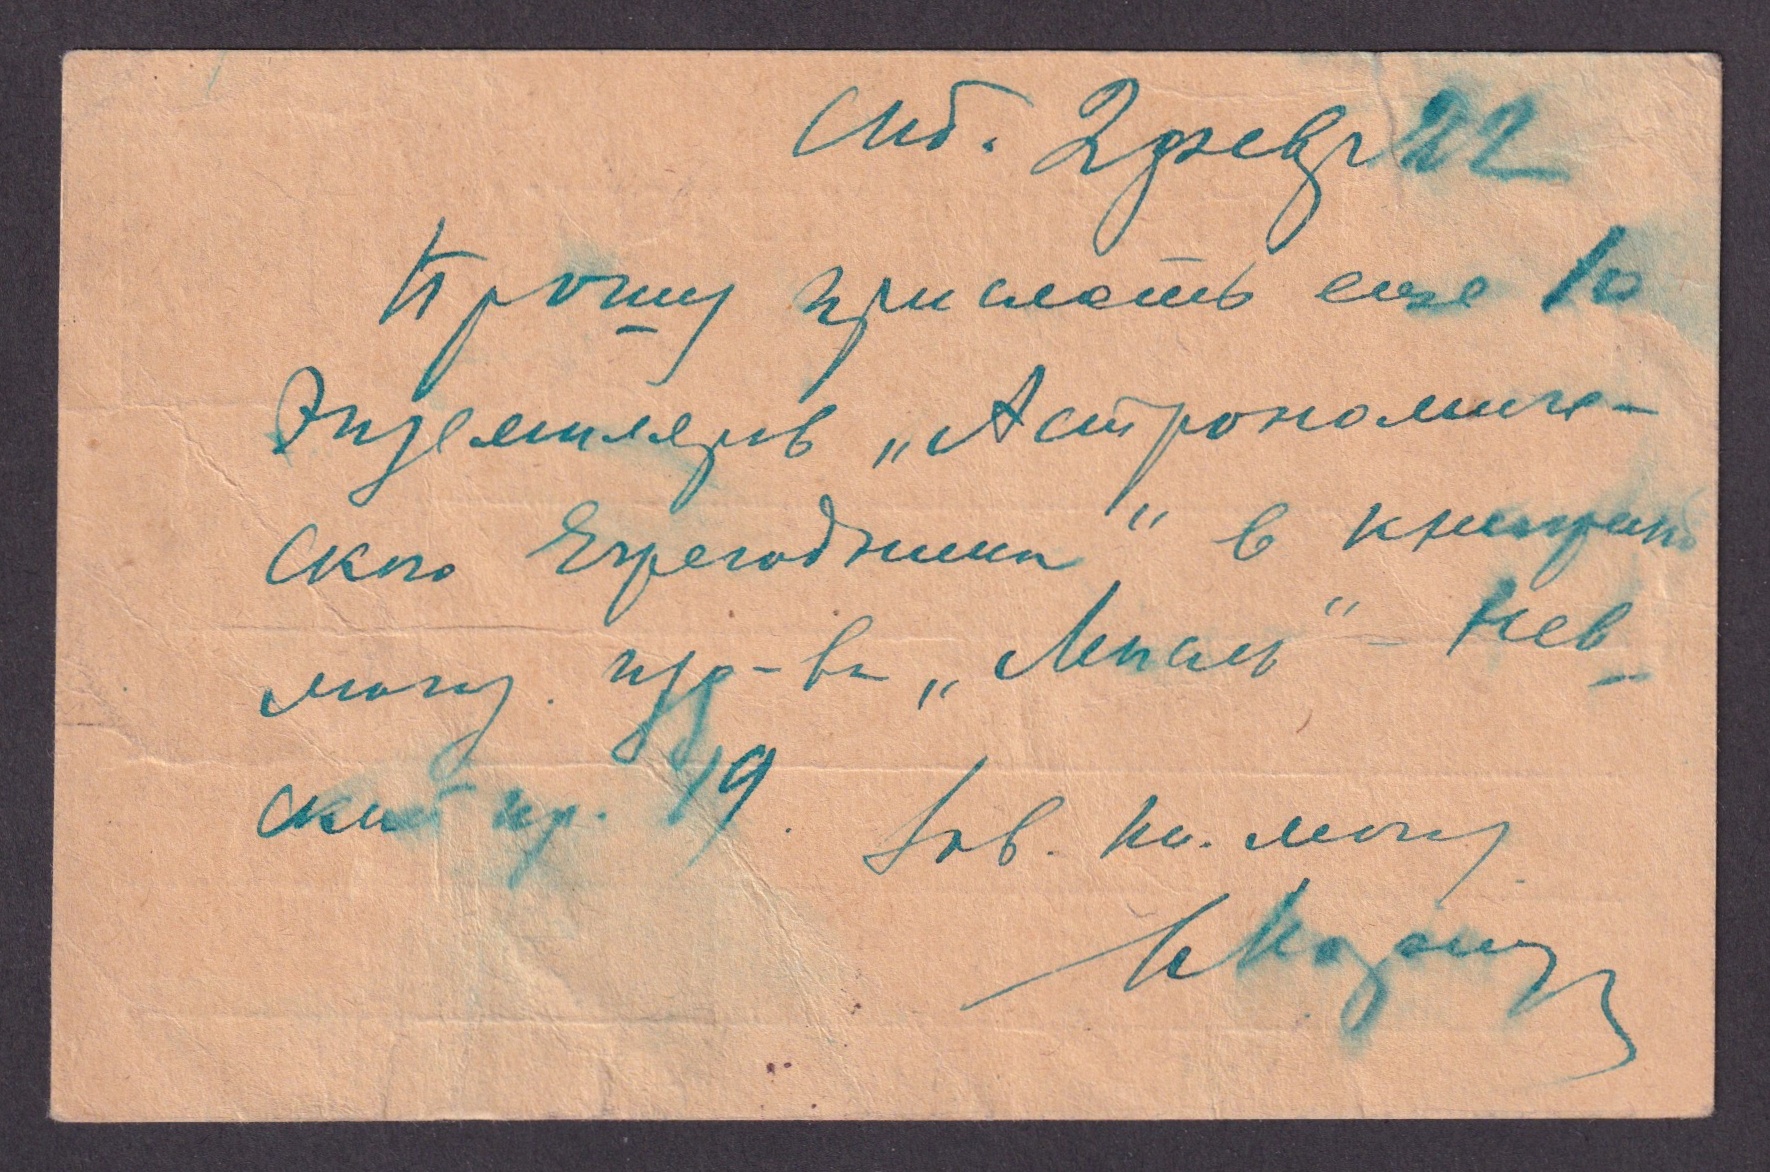 Спб. 2 февр 22
Прошу прислать еще 10
Экземпляров „Астрономиче-
ского Ежегодника" в книжный
магаз. изд-ва „Мысль" – Нев-
ский пр. 19. Зав. кн. магаз